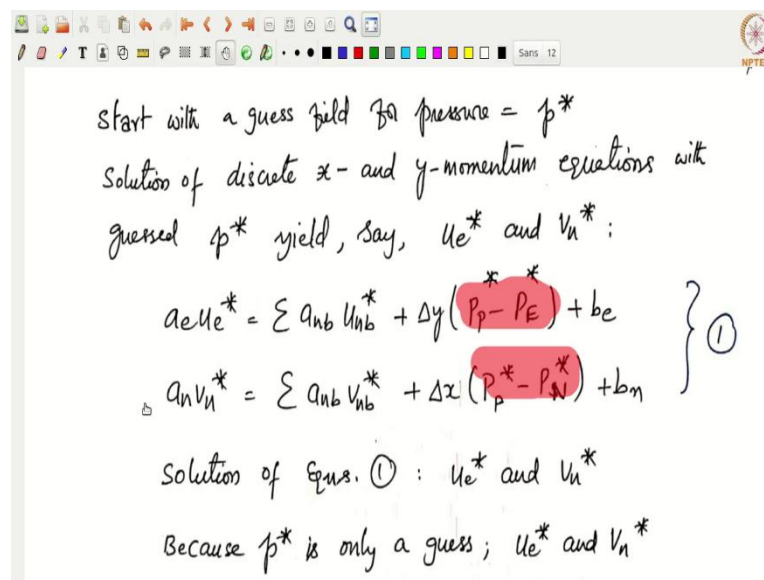 Sans 12
NPTE
Start with a guess field for pressure = p*
Solution of discrete x- and y-momentum equations with
guessed p* yield, say, ue* and vn* :
aeue* = Σ anb unb* + Δy(Pp* - PE*) + be
anvn* = Σ anb vnb* + Δx(Pp* - PN*) + bn
} ①
Solution of Eqns. ① : ue* and vn*
Because p* is only a guess; ue* and vn*